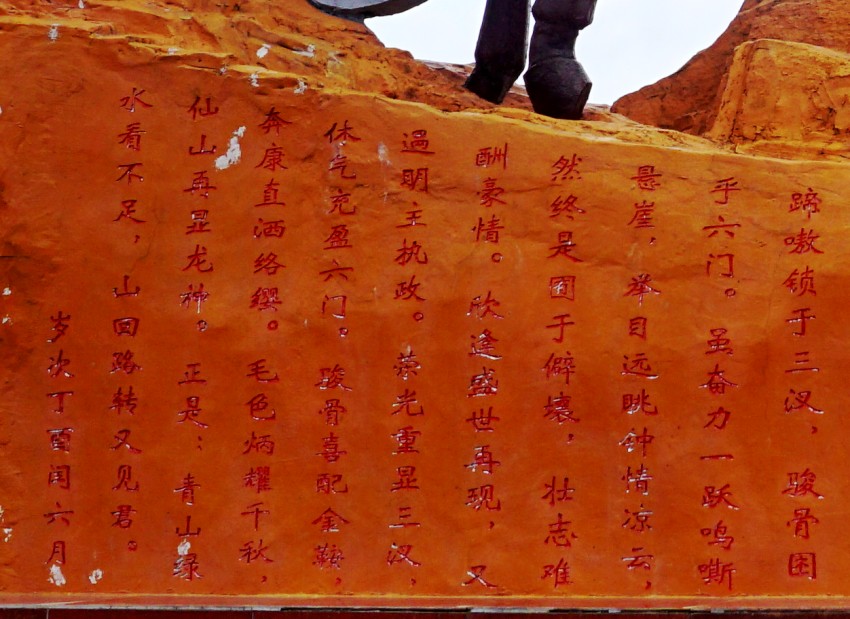 蹄嗷锁于三汊，骏骨困
乎六门。虽奋力一跃鸣嘶
悬崖，举目远眺钟情凉云，
然终是囿于僻壤，壮志难
酬豪情。欣逢盛世再现，又
遇明主执政。荣光重显三汊，
休气充盈六门。骏骨喜配金鞍，
奔康直洒络缨。毛色炳耀千秋，
仙山再显龙神。正是：青山绿
水看不足，山回路转又见君。
岁次丁酉闰六月